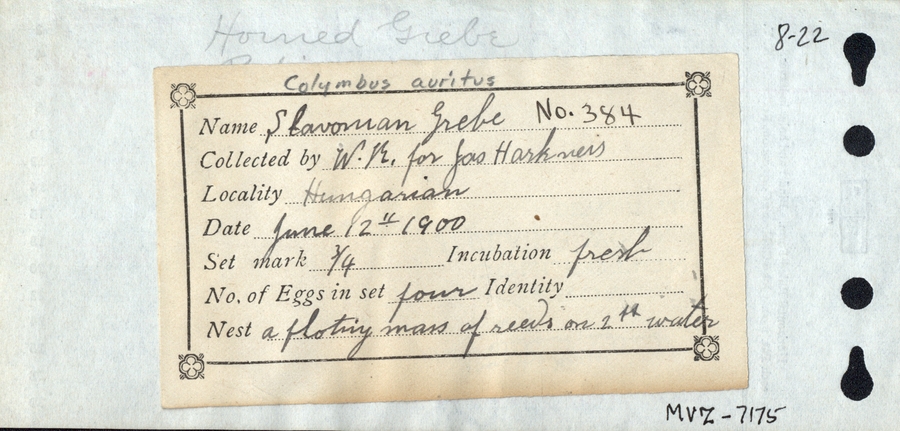 Horned Grebe
8-22
Colymbus auritus
Name Slavonian Grebe No. 384
Collected by W.R. for Jas Harkness
Locality Hungarian
Date June 12th 1900
Set mark 7/4 Incubation fresh
No. of Eggs in set four Identity
Nest a floting mass of reeds on 2 ft water
MVZ-7175